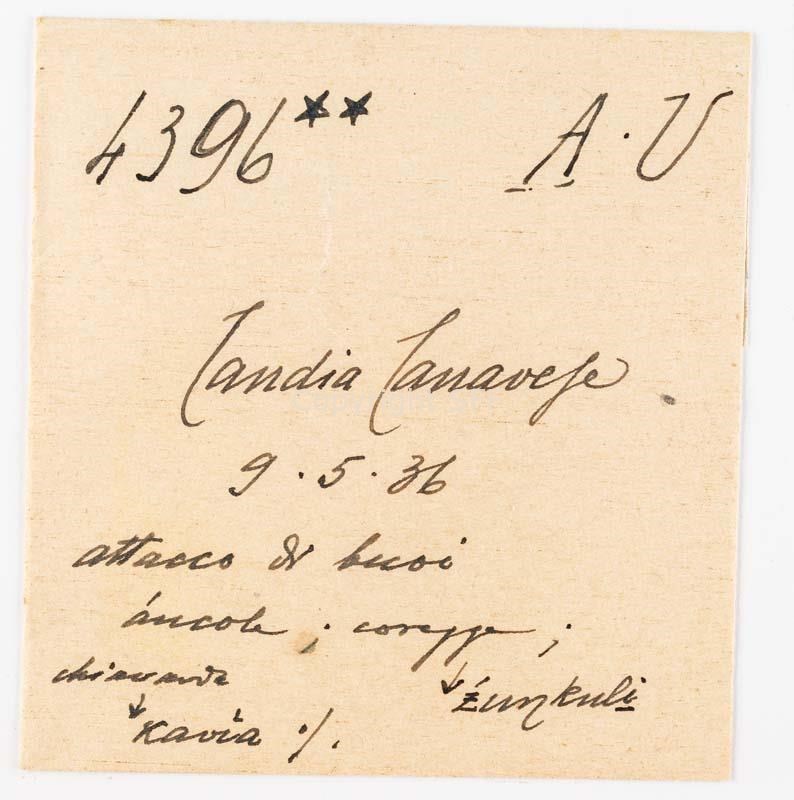 4396** A.V
Candia Canavese
9.5.36
attacco di buoi
áncole; coregge;
↓ źuŋkuli
↓ kavia ./.